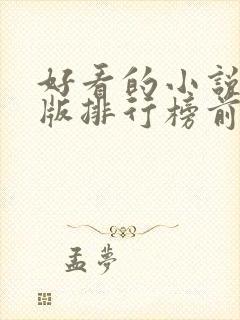 好看的小説
版排行榜前
孟夢